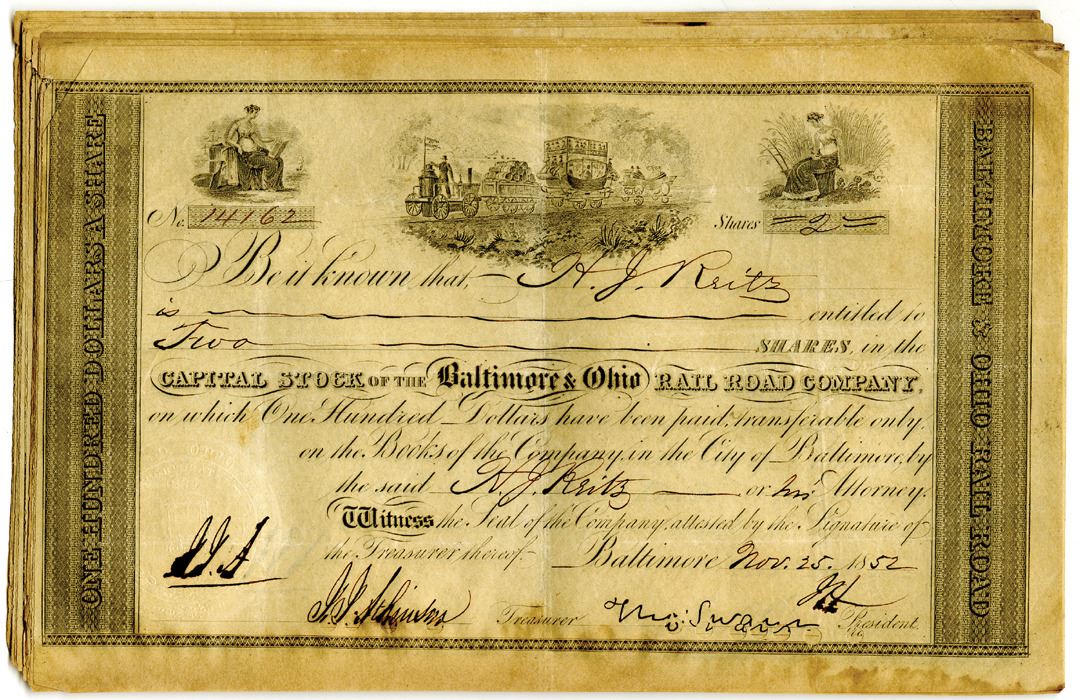 ONE HUNDRED DOLLARS A SHARE
No. 14162
Shares 2
Be it known that, H. J. Reitz
is entitled to
Two SHARES, in the
CAPITAL STOCK OF THE Baltimore & Ohio RAIL ROAD COMPANY,
on which One Hundred Dollars have been paid, transferable only
on the Books of the Company, in the City of Baltimore, by
the said H. J. Reitz or his Attorney.
Witness the Seal of the Company, attested by the Signature of
the Treasurer thereof Baltimore Nov. 25. 1852
Treasurer President
BALTIMORE & OHIO RAIL ROAD